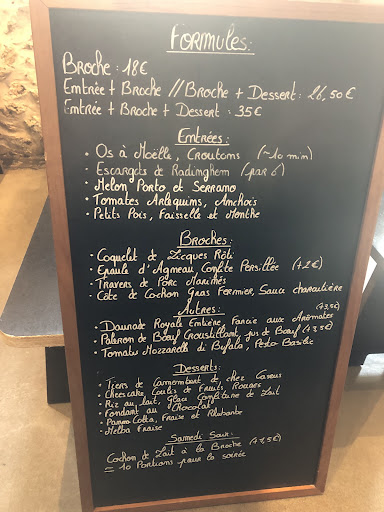 FORMULES:
BROCHE: 18€
Entrée + Broche // Broche + Dessert: 26,50€
Entrée + Broche + Dessert: 35€
Entrées:
• Os à Moëlle, Croutons (~10 min)
• Escargots de Radinghem (par 6)
• Melon Porto et Serrano
• Tomates Arlequins, Anchois
• Petits Pois, Faisselle et Menthe
Broches:
• Coquelet de Licques Rôti
• Epaule d'Agneau Confite Persillée (+2€)
• Travers de Porc Marinés
• Côte de Cochon Gras Fermier, Sauce charcutière
Autres: (+3,5€)
• Daurade Royale Entière, Farcie aux Aromates
• Paleron de Bœuf Croustillant, jus de Bœuf (+3,5€)
• Tomates Mozzarella di Bufala, Pesto Basilic
Desserts:
• Tiers de Camembert de chez
• Cheesecake Coulis de Fruits Rouges
• Riz au Lait, Glace Confiture de Lait
• Fondant au Chocolat
• Panna Cotta, Fraise et Rhubarbe
• Melba Fraise
Samedi Soir:
Cochon de Lait à la Broche (+7,5€)
= 10 Portions pour la soirée